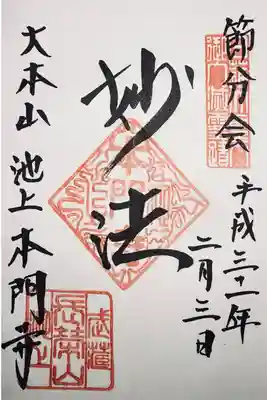 節分会
平成三十一年
二月三日
妙法
大本山 池上本門寺